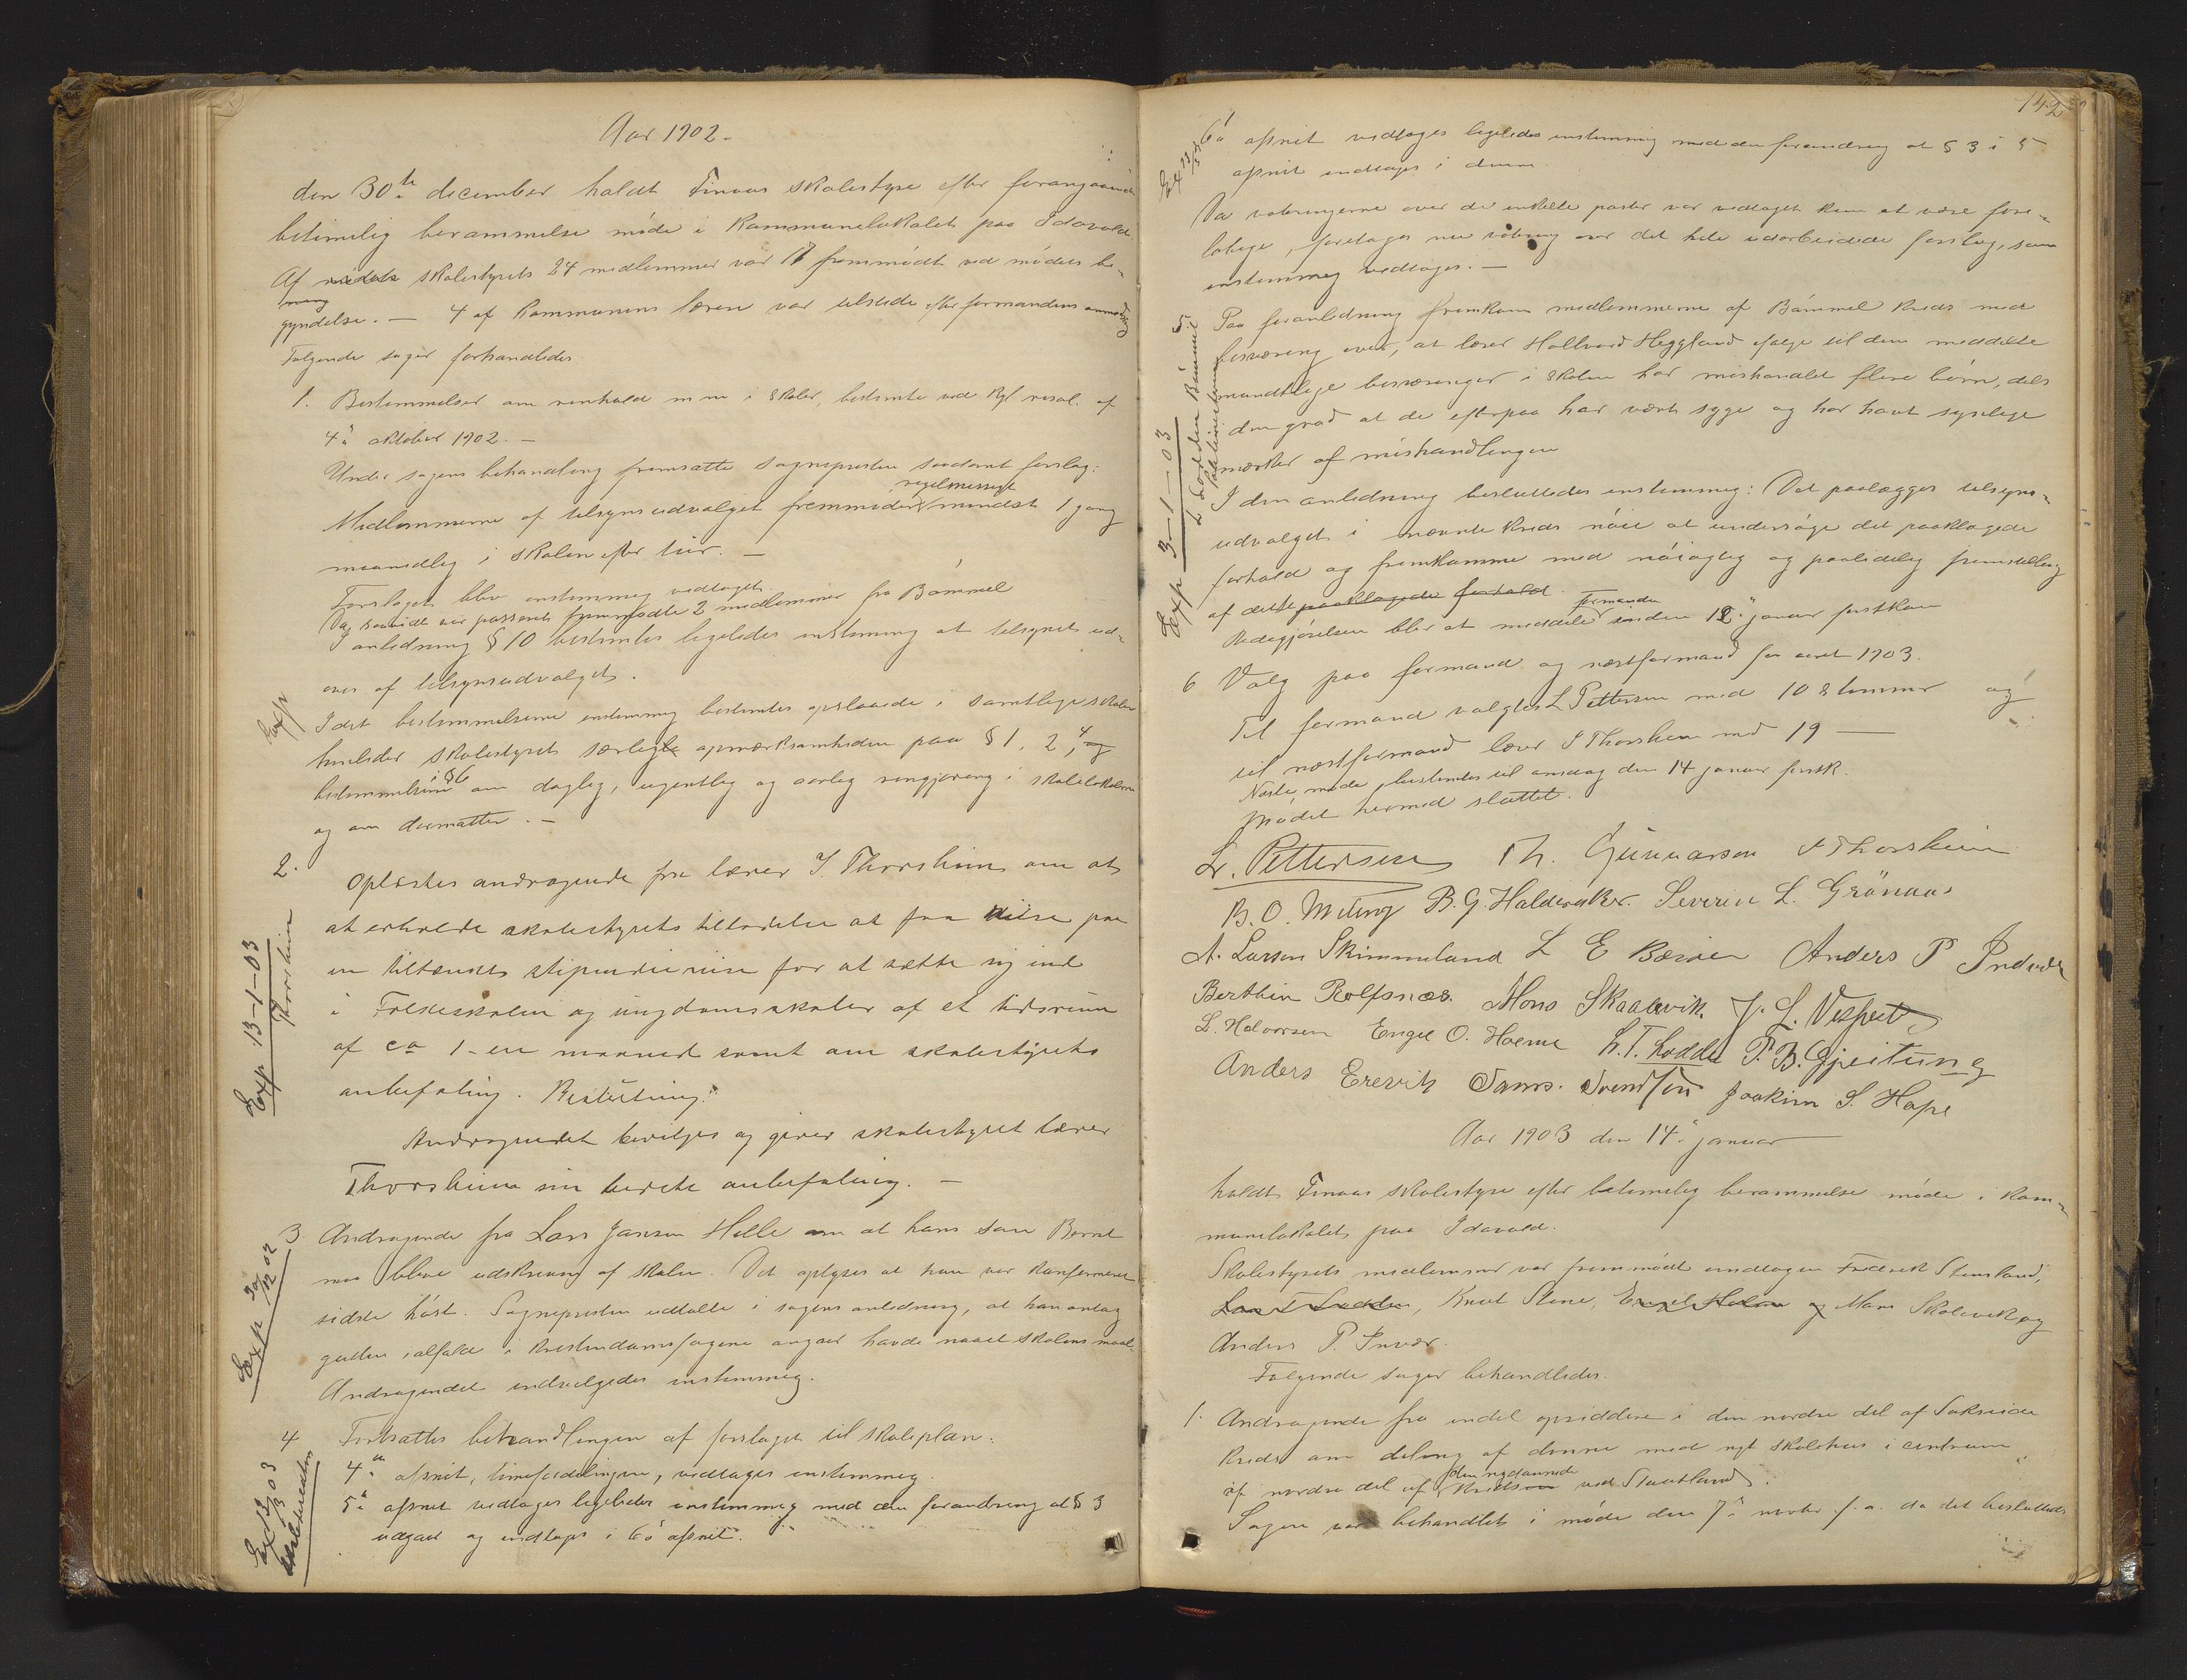 Aar 1902.
den 30te december holdt Finaas skolestyre efter forangaaende
betimelig berammelse møde i Kommunelokalet paa Idavold
Af skolestyrets 24 medlemmer var 17 fremmødt ved mødets be-
gyndelse. — 4 af Kommunens lærere var tilstede efter formandens anmodning
Følgende sager forhandledes.
1. Bestemmelser om renhold m m i skoler, bestemte ved Kgl resol. af
4de oktober 1902. —
Under sagens behandling fremsatte sognepresten saadant forslag:
regelmessigt
Medlemmerne af tilsynsudvalget fremmøder mindst 1 gang
maanedlig i skolen efter tur. —
Forslaget blev enstemmig vedtaget.
Da saavidt var passeret fremmødte 2 medlemmer fra Bømmel
I anledning § 10 bestemtes ligeledes enstemmig at tilsynet ud-
øves af tilsynsudvalget.
Exp
Idet bestemmelserne enstemmig bestemtes opslaaede i samtlige skoler
henleder skolestyret særlig opmærksomheden paa § 1, 2, 4 og
bestemmelserne i § 6 om daglig, ugentlig og aarlig rengjøring i skolelokalerne
og om dørmatter. —
2.
Oplæstes andragende fra lærer J. Thorsheim om at
at erholde skolestyrets tilladelse at faa reise paa
en tiltænkt stipendiereise for at sætte sig ind
i Folkeskolen og ungdomsskoler af et tidsrum
af ca 1-en maaned samt om skolestyrets
anbefaling. Beslutning:
Exp 13-1-03
Thorsheim
Andragendet bevilges og giver skolestyret lærer
Thorsheim sin bedste anbefaling. —
3. Andragende fra Lars Jansen Helle om at hans søn Bernt
maa blive udskreven af skolen. Det oplyses at han var konfirmeret
sidste høst. Sognepresten udtalte i sagens anledning, at han antog
gutten ialfald i kristendomsfagene angaar havde naaet skolens maal.
Andragendet indvilgedes enstemmig.
Exp 30/12 02
4 Fortsattes behandlingen af forslaget til skoleplan:
4de afsnit, timefordelingen, vedtages enstemmig.
5te afsnit vedtages ligeledes enstemmig med den forandring at § 3
udgaar og indtages i 6te afsnit.
142
6te afsnit vedtages ligeledes enstemmig med den forandring at § 3 i 5
afsnit indtages i denne
Da voteringerne over de enkelte poster var vedtaget kun at være fore-
løbige, foretages nu votering over det hele udarbeidede forslag, som
enstemmig vedtages. —
5. Paa foranledning fremkom medlemmerne af Bømmel kreds med
besværing over, at lærer Hallvard Heggland ifølge til dem meddelte
mundtlige besværinger i skolen har mishandlet flere børn, dels
den grad at de efterpaa har vært syge og har havt synlige
mærker af mishandlingen
Exp 3-1-03
I den anledning besluttedes enstemmig: Det paalægges tilsyns-
udvalget i nævnte kreds nøie at undersøge det paaklagede
forhold og fremkomme med nøiagtig og paalidelig fremstilling
af dette paaklagede forhold.
formanden
Redegjørelsen blir at meddele inden 12te januar førstkom
6 Valg paa formand og næstformand for aaret 1903.
Til formand valgtes L Pettersen med 10 stemmer og
til næstformand lærer J Thorsheim med 19 —
Næste møde bestemtes til onsdag den 14 januar førstk.
Mødet hermed sluttet.
L. Pettersen Th. Gunnarson J Thorsheim
B. O. Meling B. G. Haldorsker. Severin L. Grönaas
A. Larsen Skimmeland L E Bævør Anders P Indvær
Berthin Rolfsnæs. Mons Skaalevik J. L. Vespest
L. Halvorsen Engel O. Holme L. T. Lodde P. B. Gjeitung
Anders Erevik Tams. Svendsen Joakim S. Hope
Aar 1903 den 14de januar
holdt Finaas skolestyre efter betimelig berammelse møde i Kom-
munelokalet paa Idavold.
Skolestyrets medlemmer var fremmødt undtagen Fredrik Stensland,
Lars T Lodden, Knut Stene, Engel Holme og Mons Skalevik og
Anders P. Invær.
Følgende sager behandledes.
1. Andragende fra endel opsiddere i den nordre del af Sakseide
Kreds om deling af denne med nyt skolehus i centrum
den nydannede
af nordre del af Kredsen ved Stautland.
Sagen var behandlet i møde den 7de novbr f. a. da det besluttedes